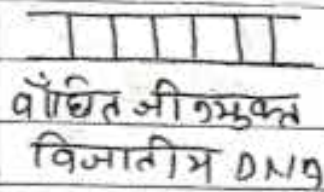 वाँछित जीनयुक्त
विजातीय DNA